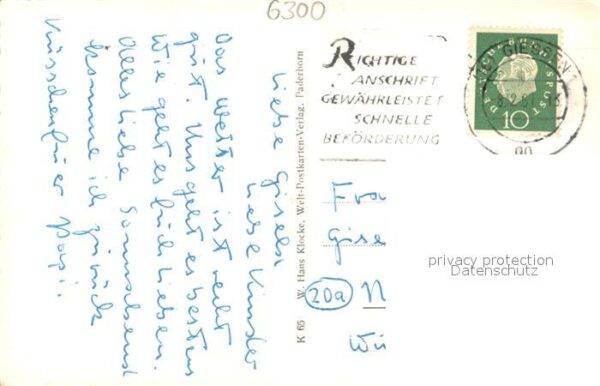 6300
Liebe Gisela
Liebe Kinder
Das Wetter ist recht
gut. Uns geht es bestens
Wie geht es Euch Lieben.
Alles Liebe Sonnabend
komme ich zurück
Küsschen für Papi.
W. Hans Klocke, Welt-Postkarten-Verlag, Paderborn
K 65
RICHTIGE
ANSCHRIFT
GEWÄHRLEISTET
SCHNELLE
BEFÖRDERUNG
GIESSEN
DEUTSCHE BUNDESPOST
10
Fra
Gise
20a N
Wü
privacy protection
Datenschutz